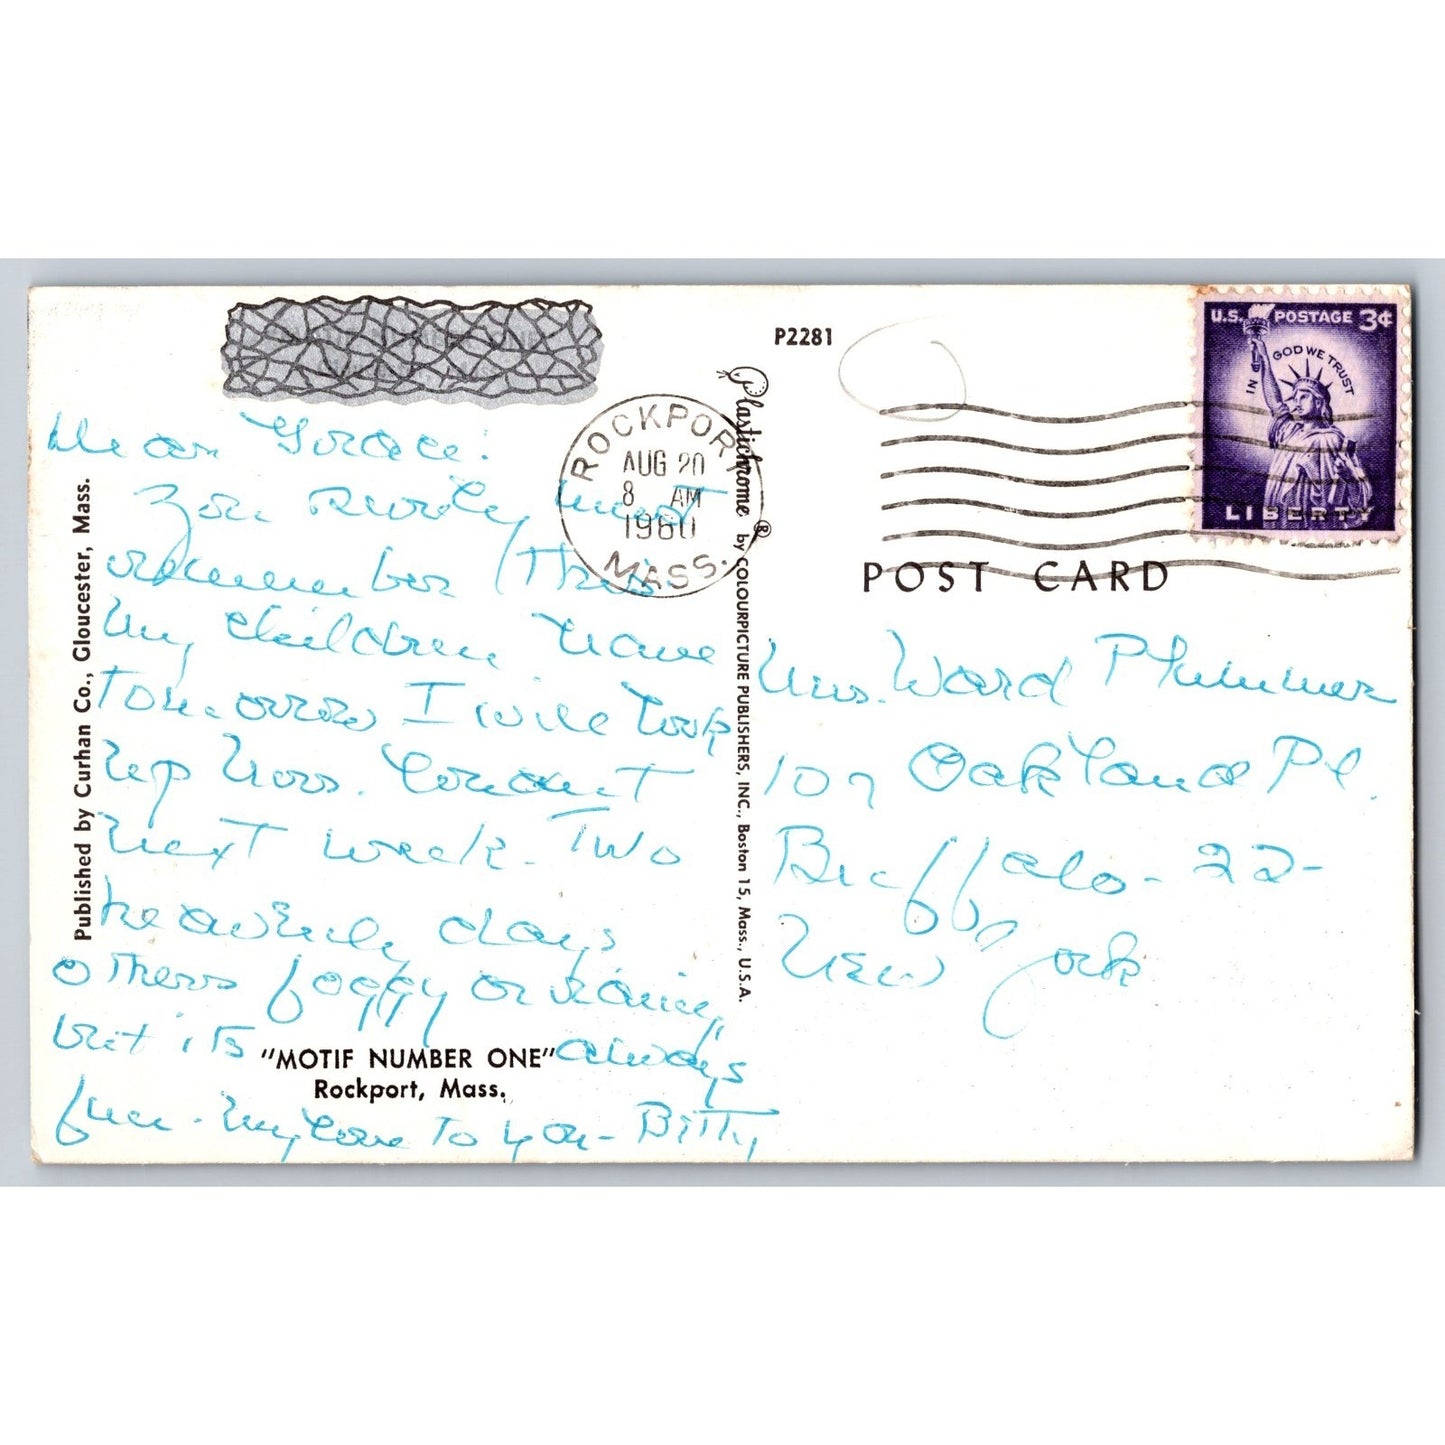 P2281
U.S. POSTAGE 3¢
IN GOD WE TRUST
LIBERTY
ROCKPORT
AUG 20
8 AM
1960
MASS.
POST CARD
Dear Grace:
You surely must
remember this
My children leave
tomorrow I will look
up Mrs. Conant
next week - Two
heavenly days
others foggy or rainy,
but its always
fun - My love to you - Bitty
Mrs. Ward Plummer
107 Oakland Pl.
Buffalo - 22 -
New York
Published by Curhan Co., Gloucester, Mass.
Plastichrome ® by COLOURPICTURE PUBLISHERS, INC., Boston 15, Mass., U.S.A.
"MOTIF NUMBER ONE"
Rockport, Mass.